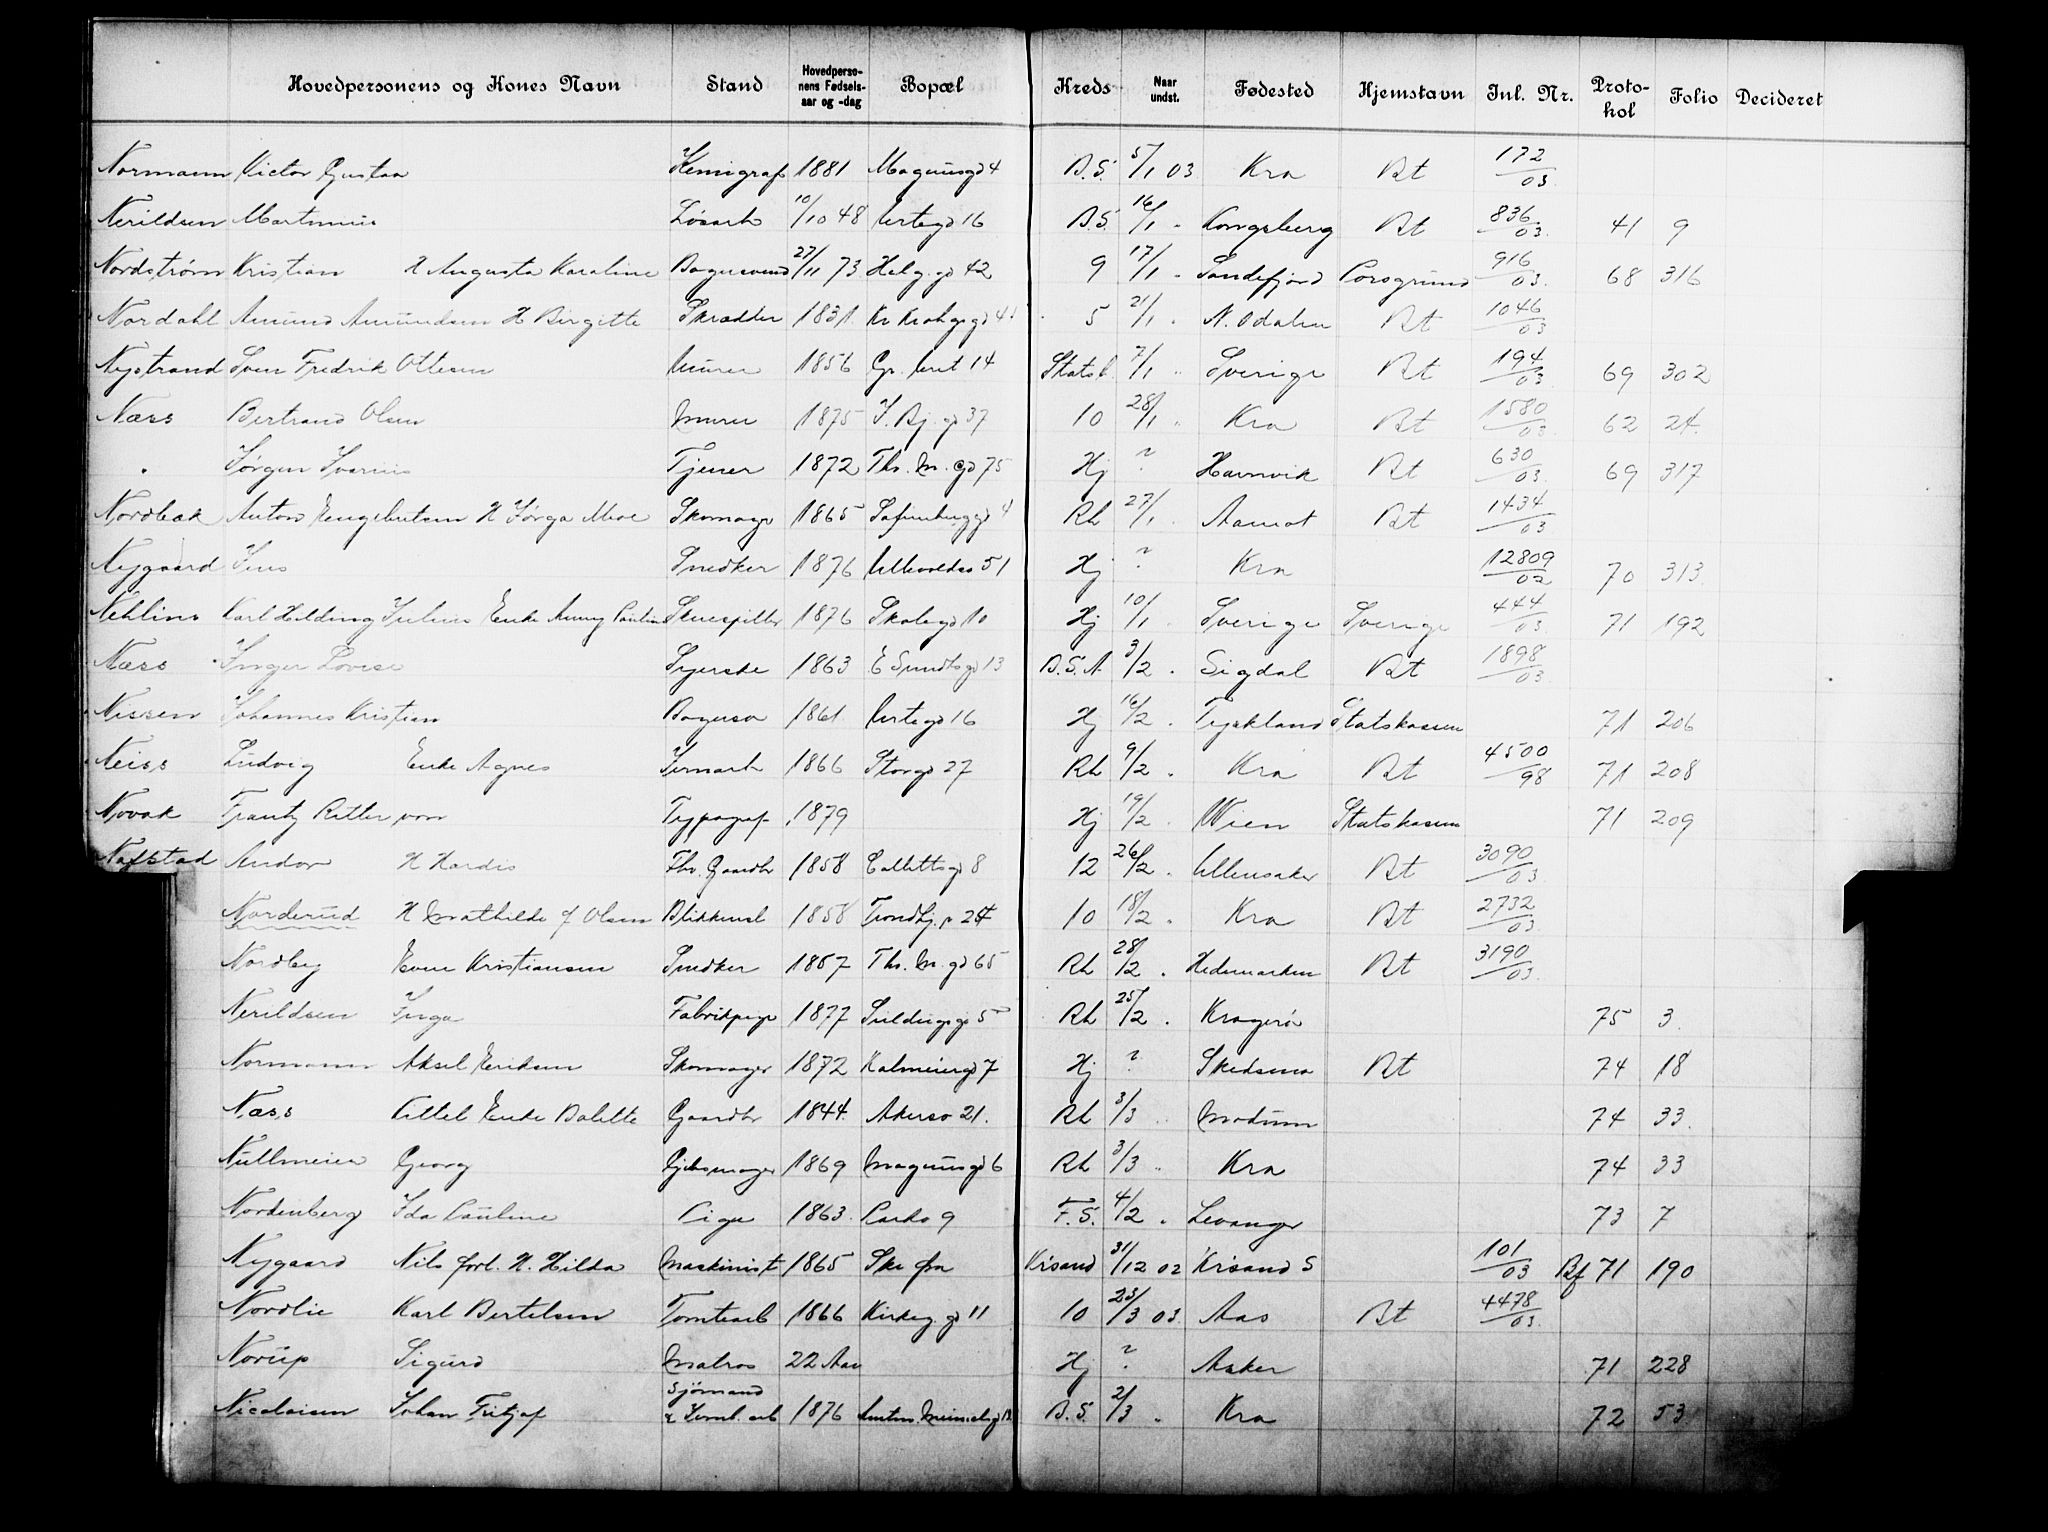 Hovedpersonens og Kones Navn Stand Hovedperso-nens Fødsels-aar og -dag Bopæl Kreds Naar undst. Fødested Hjemstavn Inl. Nr. Proto-kol Folio Decideret
Normann Victor Gustav Kemigraf 1881 Magnusgd 4 B.S. 5/1 03 Kra Bt 172/03
Nerildsen Martinius Løsarb 10/10 48 Urtegd 16 B.S. 16/1 " Kongsberg Bt 836/03. 41 9
Nordstrøm Kristian H Augusta Karoline Bagersvend 27/11 73 Helg. gd 42 9 17/1 " Sandefjord Porsgrund 916/03. 68 316
Nordahl Amund Amundsen H Birgitte Skrædder 1831. Kr Krohgs gd 5 21/1 " N. Odalen Bt 1046/03
Nystrand Sven Fredrik Ottesen Murer 1856 Gr. 14 Statsb. 7/1 " Sverige Bt 194/03 69 302
Næss Bertrand Olsen Murer 1875 J. Bj. gd 37 10 28/1 " Kra Bt 1580/03 62 24.
" Jørgen Ivarius Tjener 1872 Th. M. gd 75 Hj ? Havnvik Bt 630/03. 69 317
Nordbak Anton Engebretsen H Jørga Moe Skomager 1865 Sofienberggd 4 Rh 27/1 " Aamot Bt 1434/03
Nygaard Jens Snedker 1876 Ullevoldsv 51 Hj ? Kra 12809/02 70 313.
Nehlins Karl Hilding Julius Enke Anny Pauline Skuespiller 1876 Skolegd 10 Hj 10/1 " Sverige Sverige 444/03. 71 192
Næss Inger Lovise Syerske 1863 E Sundtsgd 13 B.S.A. 3/2 " Sigdal Bt 1898/03
Nissen Johannes Kristian Bagersv 1861. Urtegd 16 Hj 16/2 " Tyskland Statskassen 71 206
Neiss Ludvig Enke Agnes Jernarb 1866 Storgd 27 Rh 9/2 " Kra Bt 4500/98 71 208
Novak Frantz Ritter von Typograf 1879 Hj 19/2 " Wien Statskassen 71 209
Nafstad Andor H Hardis Fhv. Gaardbr 1858 Collettsgd 8 12 26/2 " Ullensaker Bt 3090/03.
Norderud H Mathilde f Olsen Blikkensl 1858 Trondhj. v 24 10 18/2 " Kra Bt 2732/03
Nordby Even Kristiansen Snedker 1857 Th. M. gd 65 Rh 28/2 " Hedemarken Bt 3190/03.
Nerildsen Inga Fabrikpige 1877 5 Rh 25/2 " Kragerø 75 3.
Normann Aksel Eriksen Skomager 1872 Kalmeiergd 7 Hj ? Skedsmo Bt 74 18
Næss Kittel Enke Bolette Gaardbr 1844. Akersv 21. Rh 3/3 " Modum 74 33.
Nullmeier Georg Gibsmager 1869 Magnusgd 6 Rh 3/3 " Kra 74 33
Nordenberg Ida Pauline Pige 1863. Parkv 9 F.S. 4/2 " Levanger 73 7
Nygaard Nils forl. H. Hilda Maskinist 1865 Ske fra Krsand 31/12 02 Krsand S 101/03 Bf 71 190
Nordlie Karl Bertelsen Tomtearb 1866 Kirkeg. gd 11 10 23/3 03. Aas Bt 4478/03.
Norup Sigurd Matros 22 Aar Hj ? Asker 71 228
Nicolaisen Johan Fritjof Sjømand & Jernb. arb 1876 B.S. 2/3 " Kra 72 53